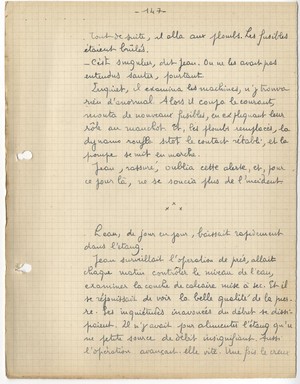 - 147 -
Tout de suite, il alla aux plombs. Les fusibles
étaient brûlés.
- C'est singulier, dit Jean. On ne les avait pas
entendus sauter, pourtant.
Inquiet, il examina les machines, n'y trouva
rien d'anormal. Alors il coupa le courant,
monta de nouveaux fusibles, en expliquant leur
rôle au manchot et, les plombs remplacés, la
dynamo ronfla sitôt le contact rétabli, et la
pompe se mit en marche.
Jean, rassuré, oublia cette alerte, et, pour
ce jour-là, ne se soucia plus de l'incident
x x x
L'eau, de jour en jour, baissait rapidement
dans l'étang.
Jean surveillait l'opération de près, allait
chaque matin contrôler le niveau de l'eau,
examiner la couche de calcaire mise à sec. Et il
se réjouissait de voir la belle qualité de la pier-
re. Ses inquiétudes inavouées du début se dissi-
paient. Il n'y avait pour alimenter l'étang qu'u-
ne petite source de débit insignifiant. Aussi
l'opération avançait-elle vite. Une fois le creux